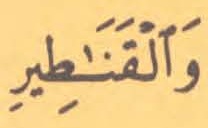 وَٱلْقَنَٰطِيرِ